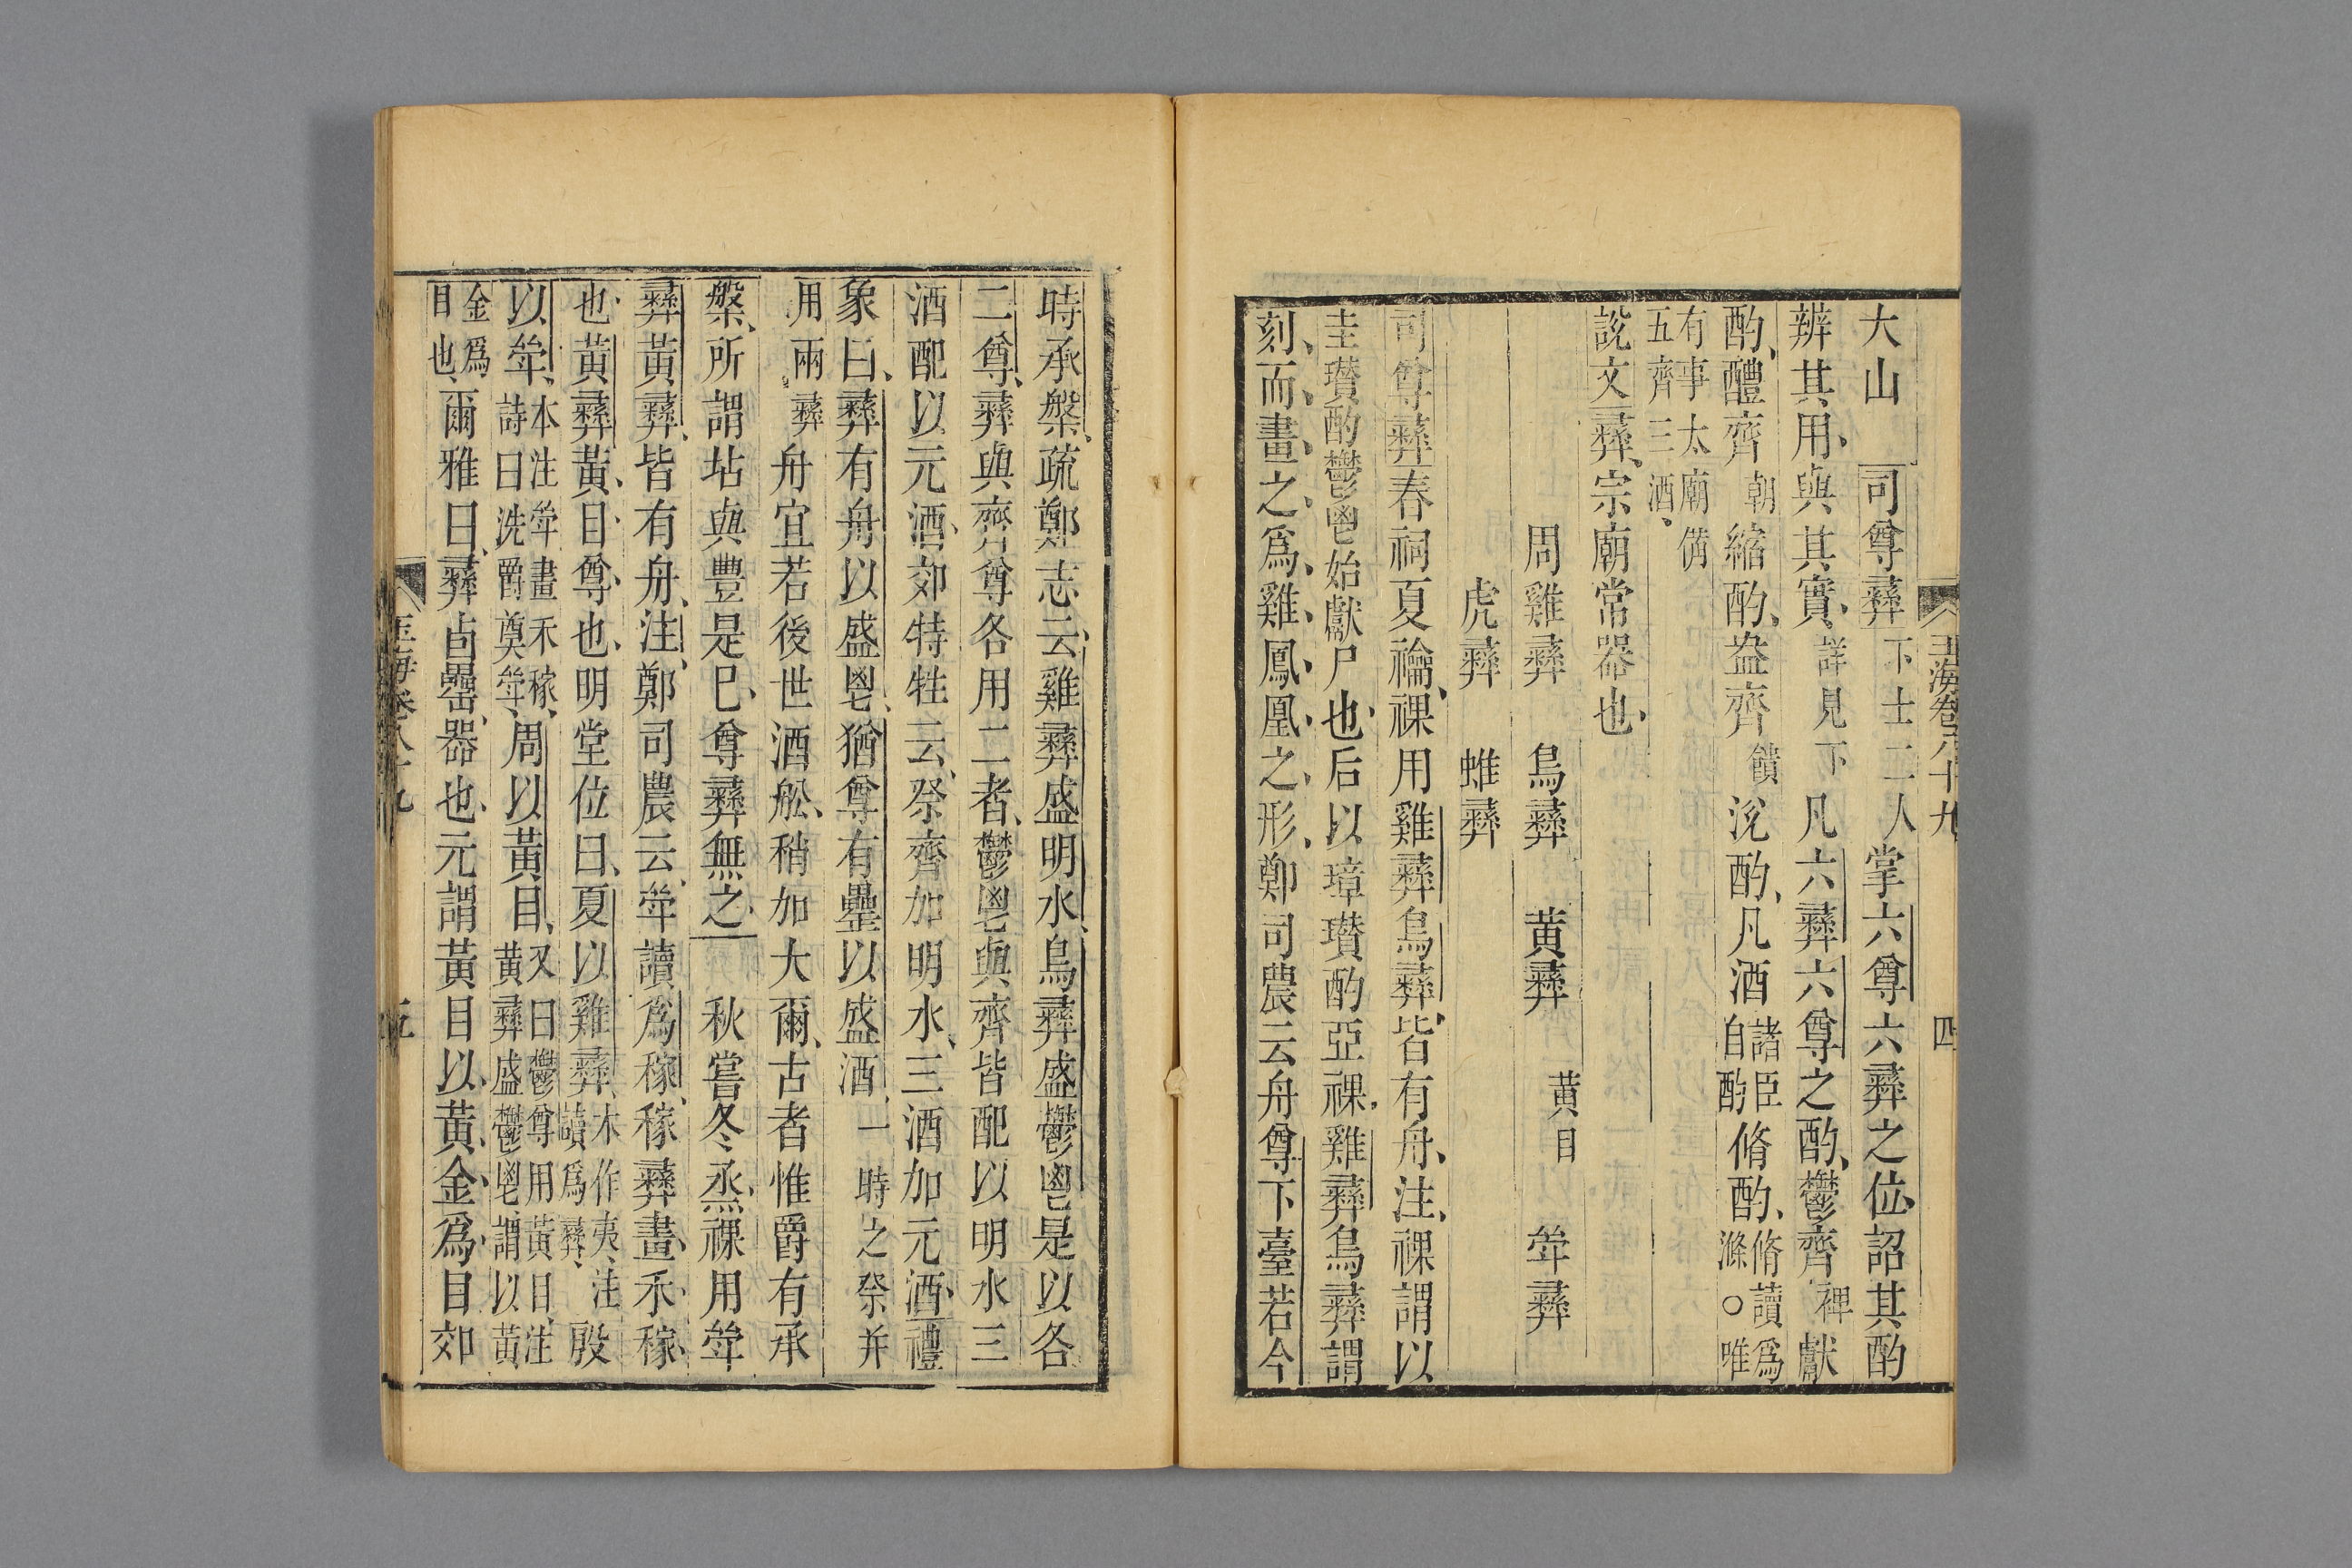 玉海卷八十九 四
大山 司尊彝下士二人掌六尊六彝之位詔其酌
辨其用與其實詳見下凡六彝六尊之酌鬱齊裸獻
酌醴齊朝縮酌盎齊饋涗酌凡酒諸臣自酌脩酌脩讀爲滌○唯
有事太廟備五齊三酒
說文彝宗廟常器也
周雞彝 鳥彝 黃彝黃目 斝彝
虎彝 蜼彝
司尊彝春祠夏禴祼用雞彝鳥彝皆有舟注祼謂以
圭瓚酌鬱鬯始獻尸也后以璋瓚酌亞祼雞彝鳥彝謂
刻而畫之爲雞鳳凰之形鄭司農云舟尊下臺若今
時承槃疏鄭志云雞彝盛明水鳥彝盛鬱鬯是以各
二尊彝與齊尊各用二者鬱鬯與齊皆配以明水三
酒配以元酒郊特牲云祭齊加明水三酒加元酒禮
象曰彝有舟以盛鬯猶尊有罍以盛酒一時之祭并
用兩彝舟宜若後世酒船稍加大爾古者惟爵有承
槃所謂坫與豐是巳尊彝無之 秋嘗冬烝祼用斝
彝黃彝皆有舟注鄭司農云斝讀爲稼稼彝畫禾稼
也黃彝黃目尊也明堂位曰夏以雞彝木作夷注讀爲彝殷
以斝本注斝畫禾稼詩曰洗爵奠斝周以黃目又曰鬱尊用黃目注黃彝盛鬱鬯謂以黃
金爲目也爾雅曰彝卣罍器也元謂黃目以黃金爲目郊
玉海卷八十九 五